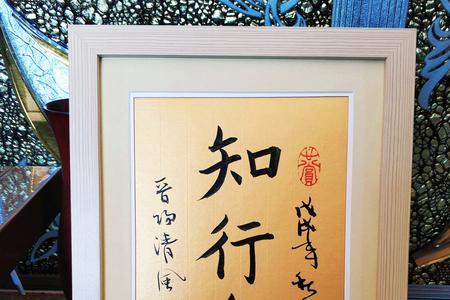 戊戌年秋
知行
晋陽清風